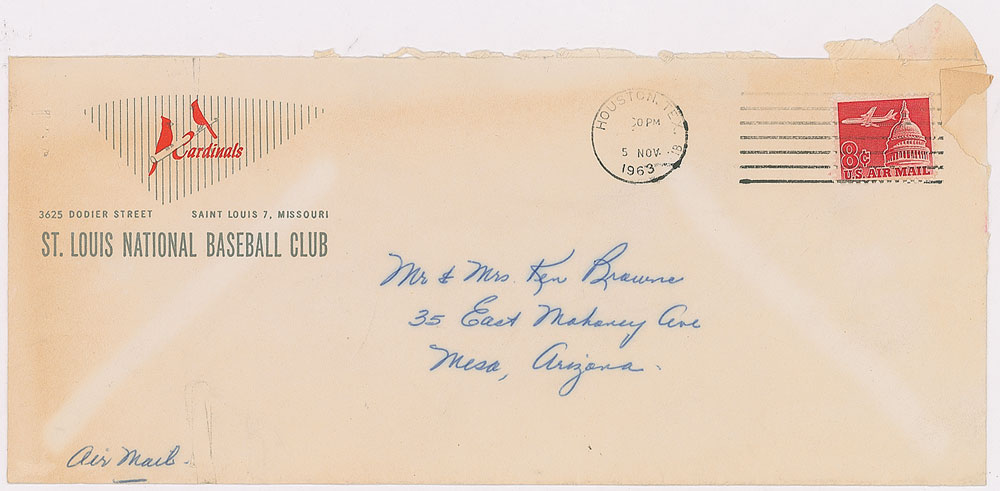 Cardinals
3625 DODIER STREET SAINT LOUIS 7, MISSOURI
ST. LOUIS NATIONAL BASEBALL CLUB
HOUSTON, TEX.
30 PM
5 NOV.
1963
8¢
U.S. AIR MAIL
Mr & Mrs. Ken Browne
35 East Mahoney Ave
Mesa, Arizona.
Air Mail.